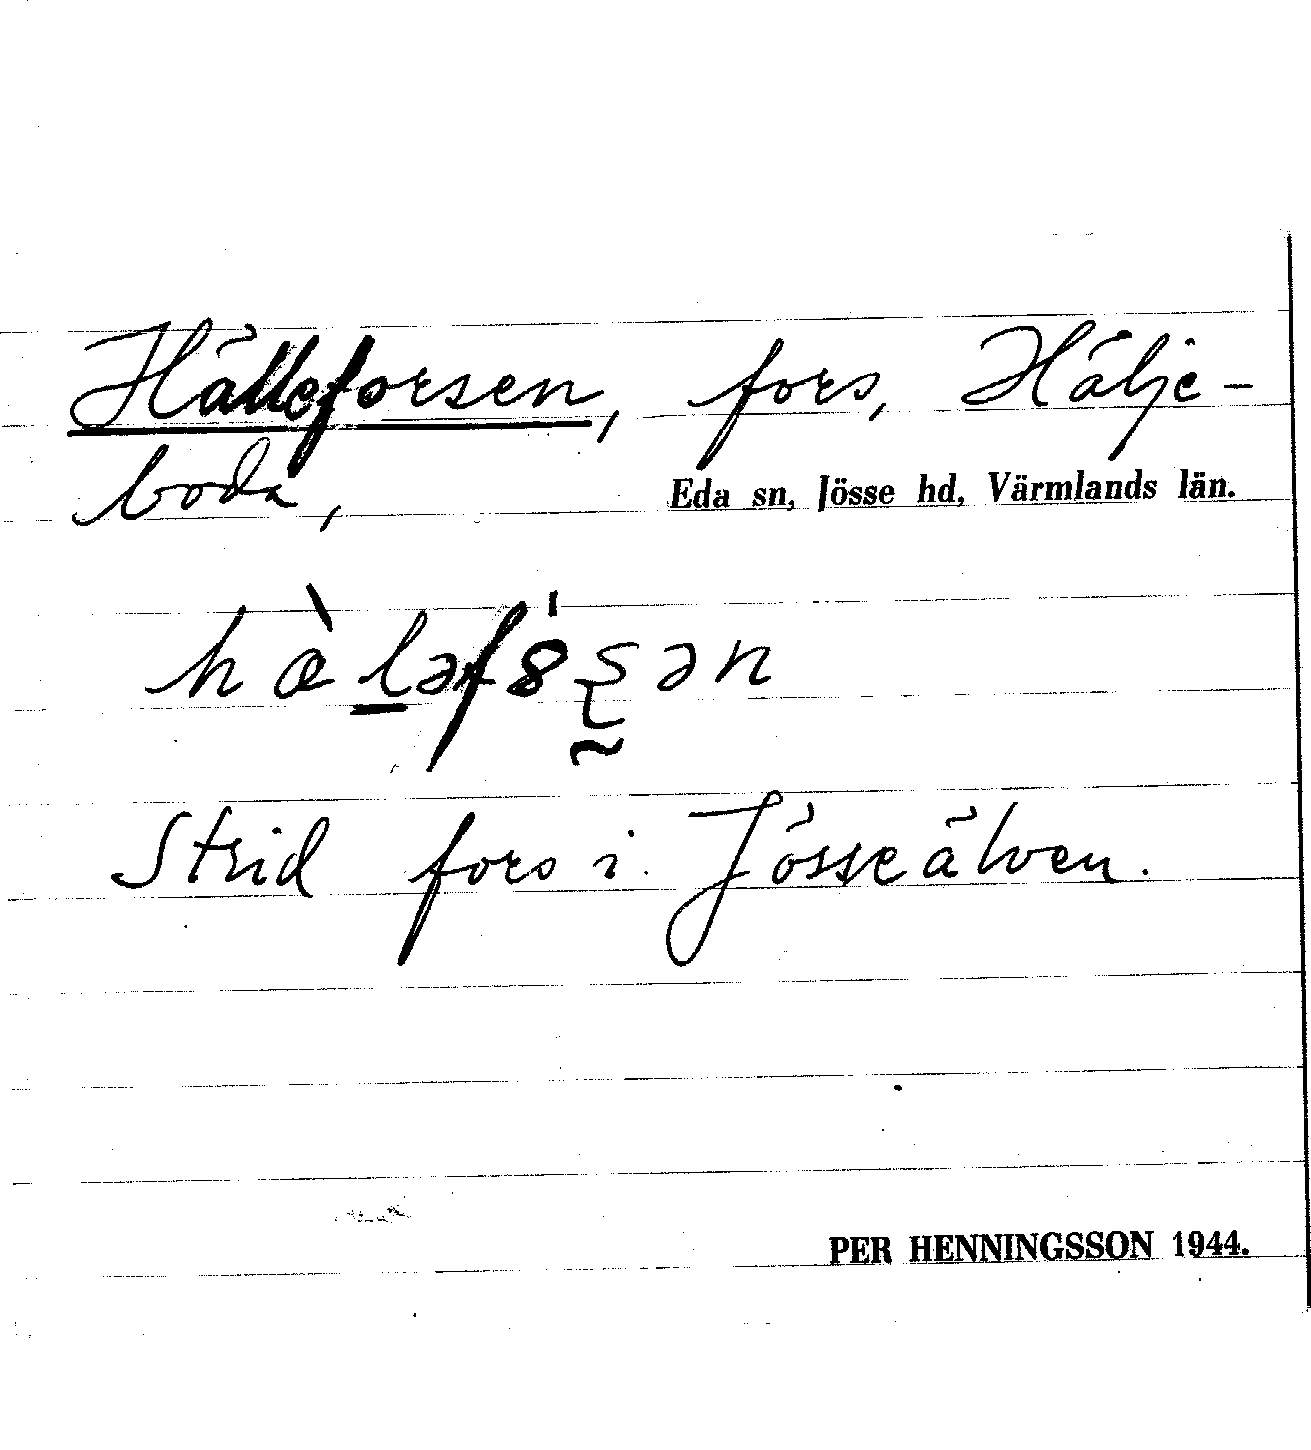 Hälleforsen, fors, Hälje-
boda,
Eda sn, Jösse hd, Värmlands län.
Strid fors i Jösseälven.
PER HENNINGSSON 1944.